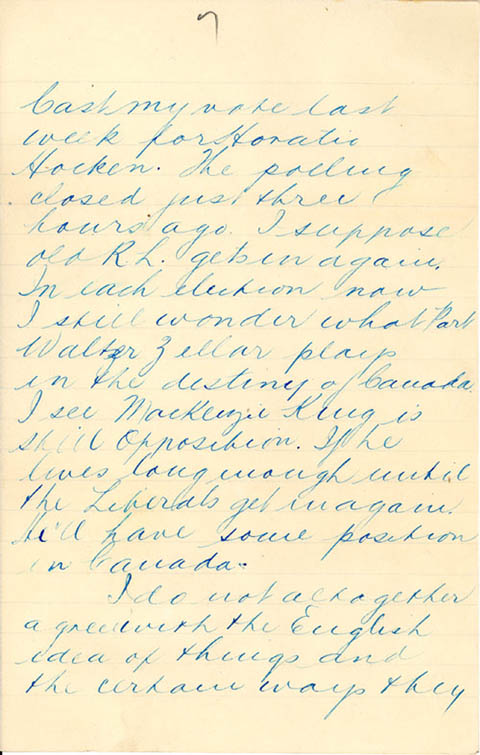 7
Cast my vote last
week for Horatio
Hocken. The polling
closed just three
hours ago. I suppose
old R.L. gets in again.
In each election now
I still wonder what Part
Walter Zellar plays
in the destiny of Canada.
I see MacKenzie King is
still Opposition. If he
lives long enough until
the Liberals get in again.
He'll have some position
in Canada.
I do not altogether
agree with the English
idea of things and
the certain ways they